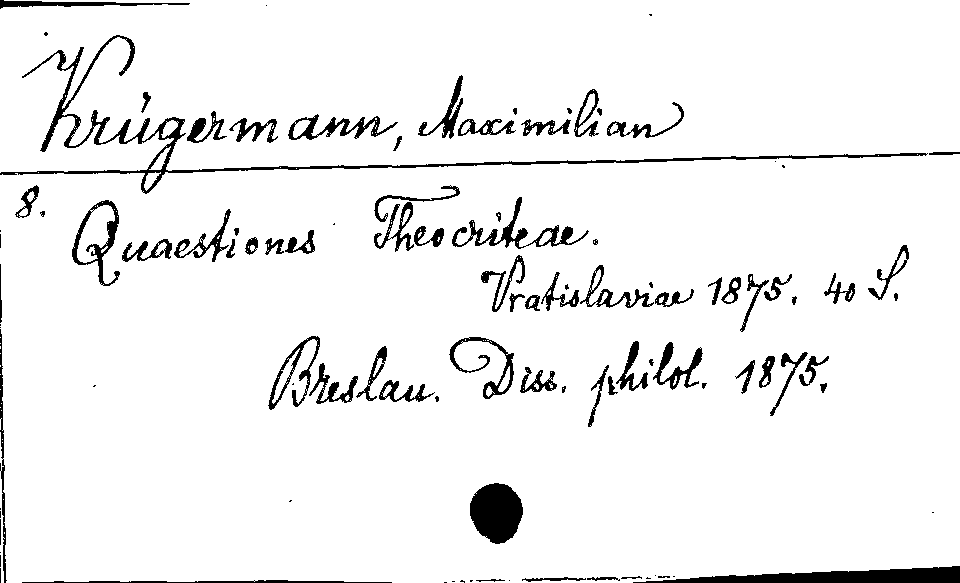 Krügermann, Maximilian
8.
Quaestiones Theocriteae.
Vratislaviae 1875. 40 S.
Breslau. Diss. philol. 1875.